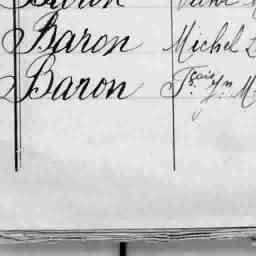 Baron
Baron Michel
Baron Fçois Jn M